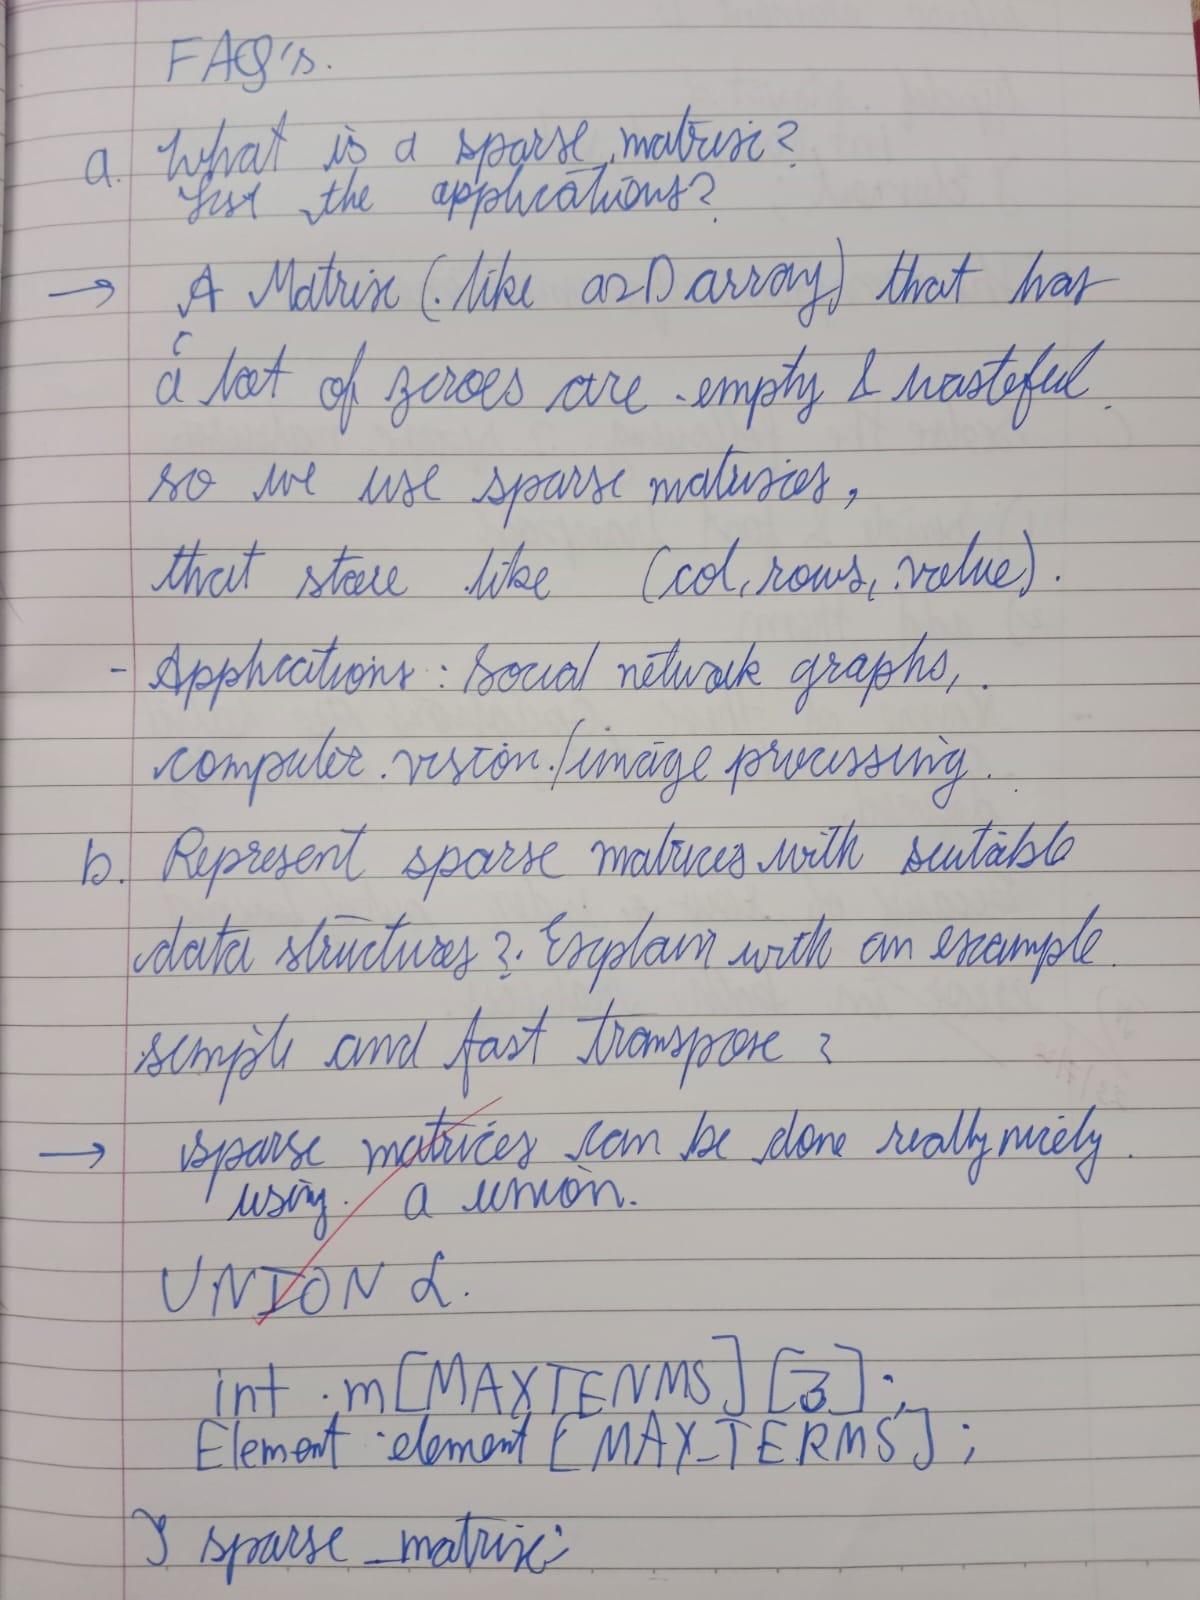 FAQ's.
a. What is a sparse matrix?
List the applications?
→ A Matrix (like a 2D array) that has
a lot of zeroes are empty & wasteful.
so we use sparse matrices,
that store like (col, rows, value).
- Applications: Social network graphs,
computer vision/image processing.
b. Represent sparse matrices with suitable
data structures? Explain with an example
simple and fast transpose?
→ sparse matrices can be done really nicely.
using a union.
UNION {
int m[MAXTERMS][3];
Element element [MAX_TERMS];
} sparse_matrix;